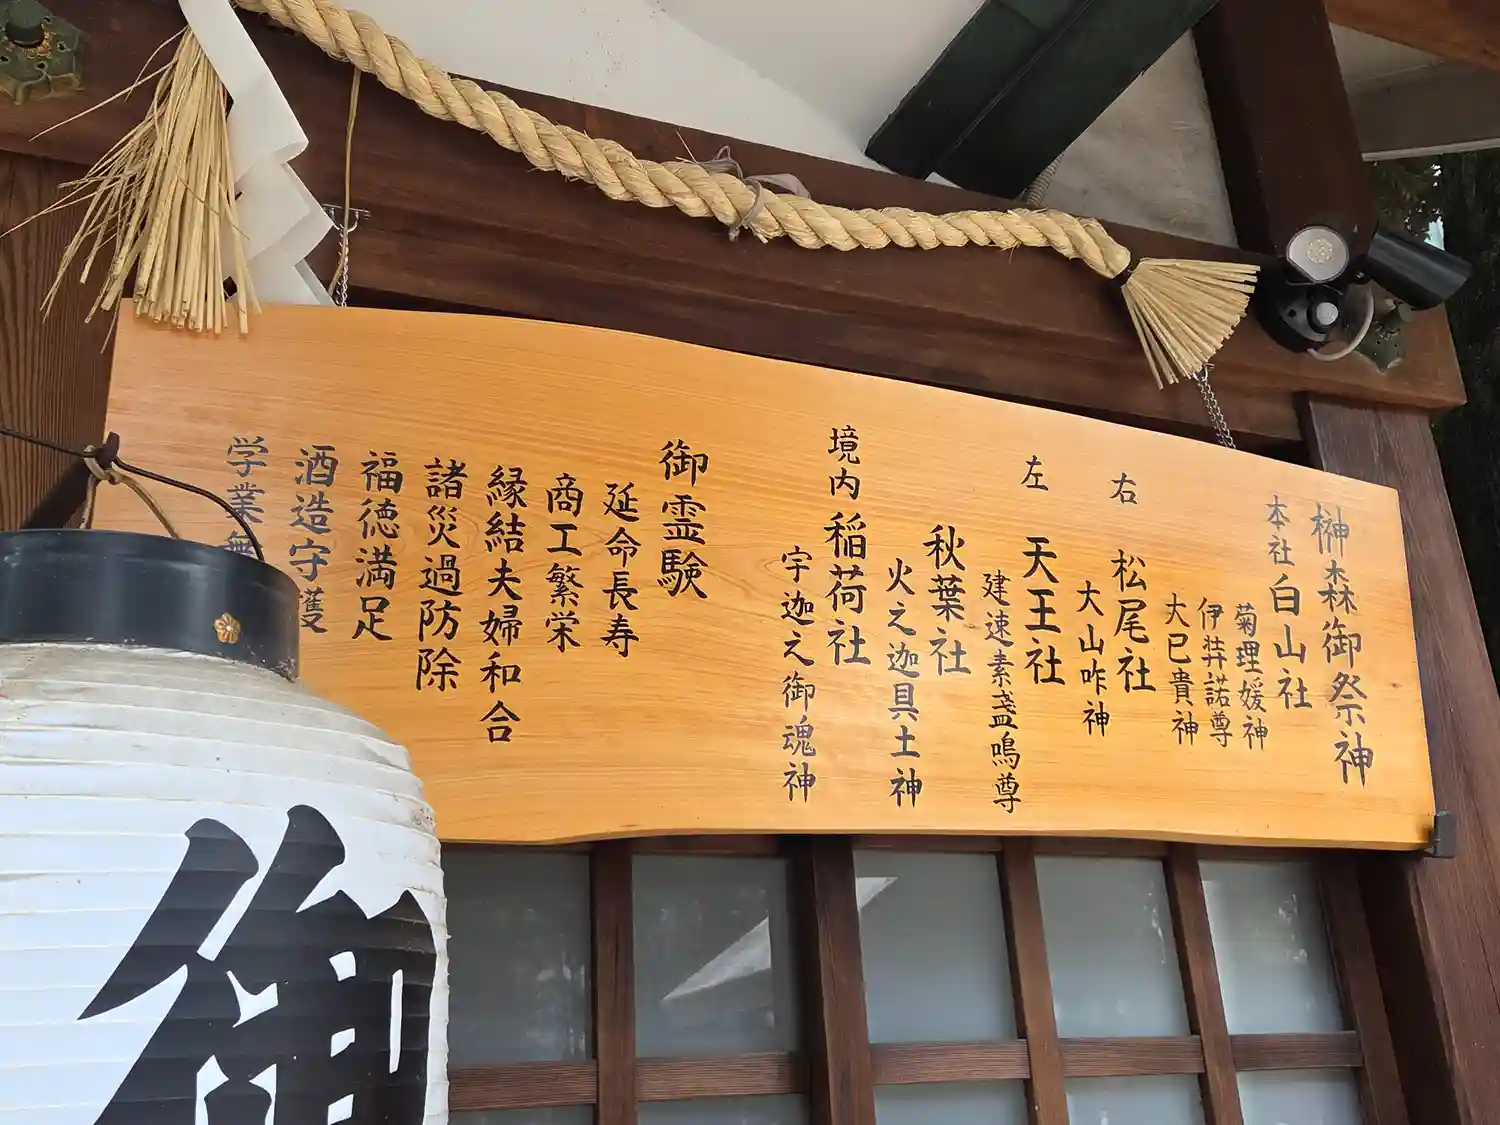 榊森御祭神
本社 白山社
菊理媛神
伊弉諾尊
大巳貴神
右 松尾社
大山咋神
左 天王社
建速素盞鳴尊
秋葉社
火之迦具土神
境内 稲荷社
宇迦之御魂神
御霊験
延命長寿
商工繁栄
縁結夫婦和合
諸災過防除
福徳満足
酒造守護
学業
御